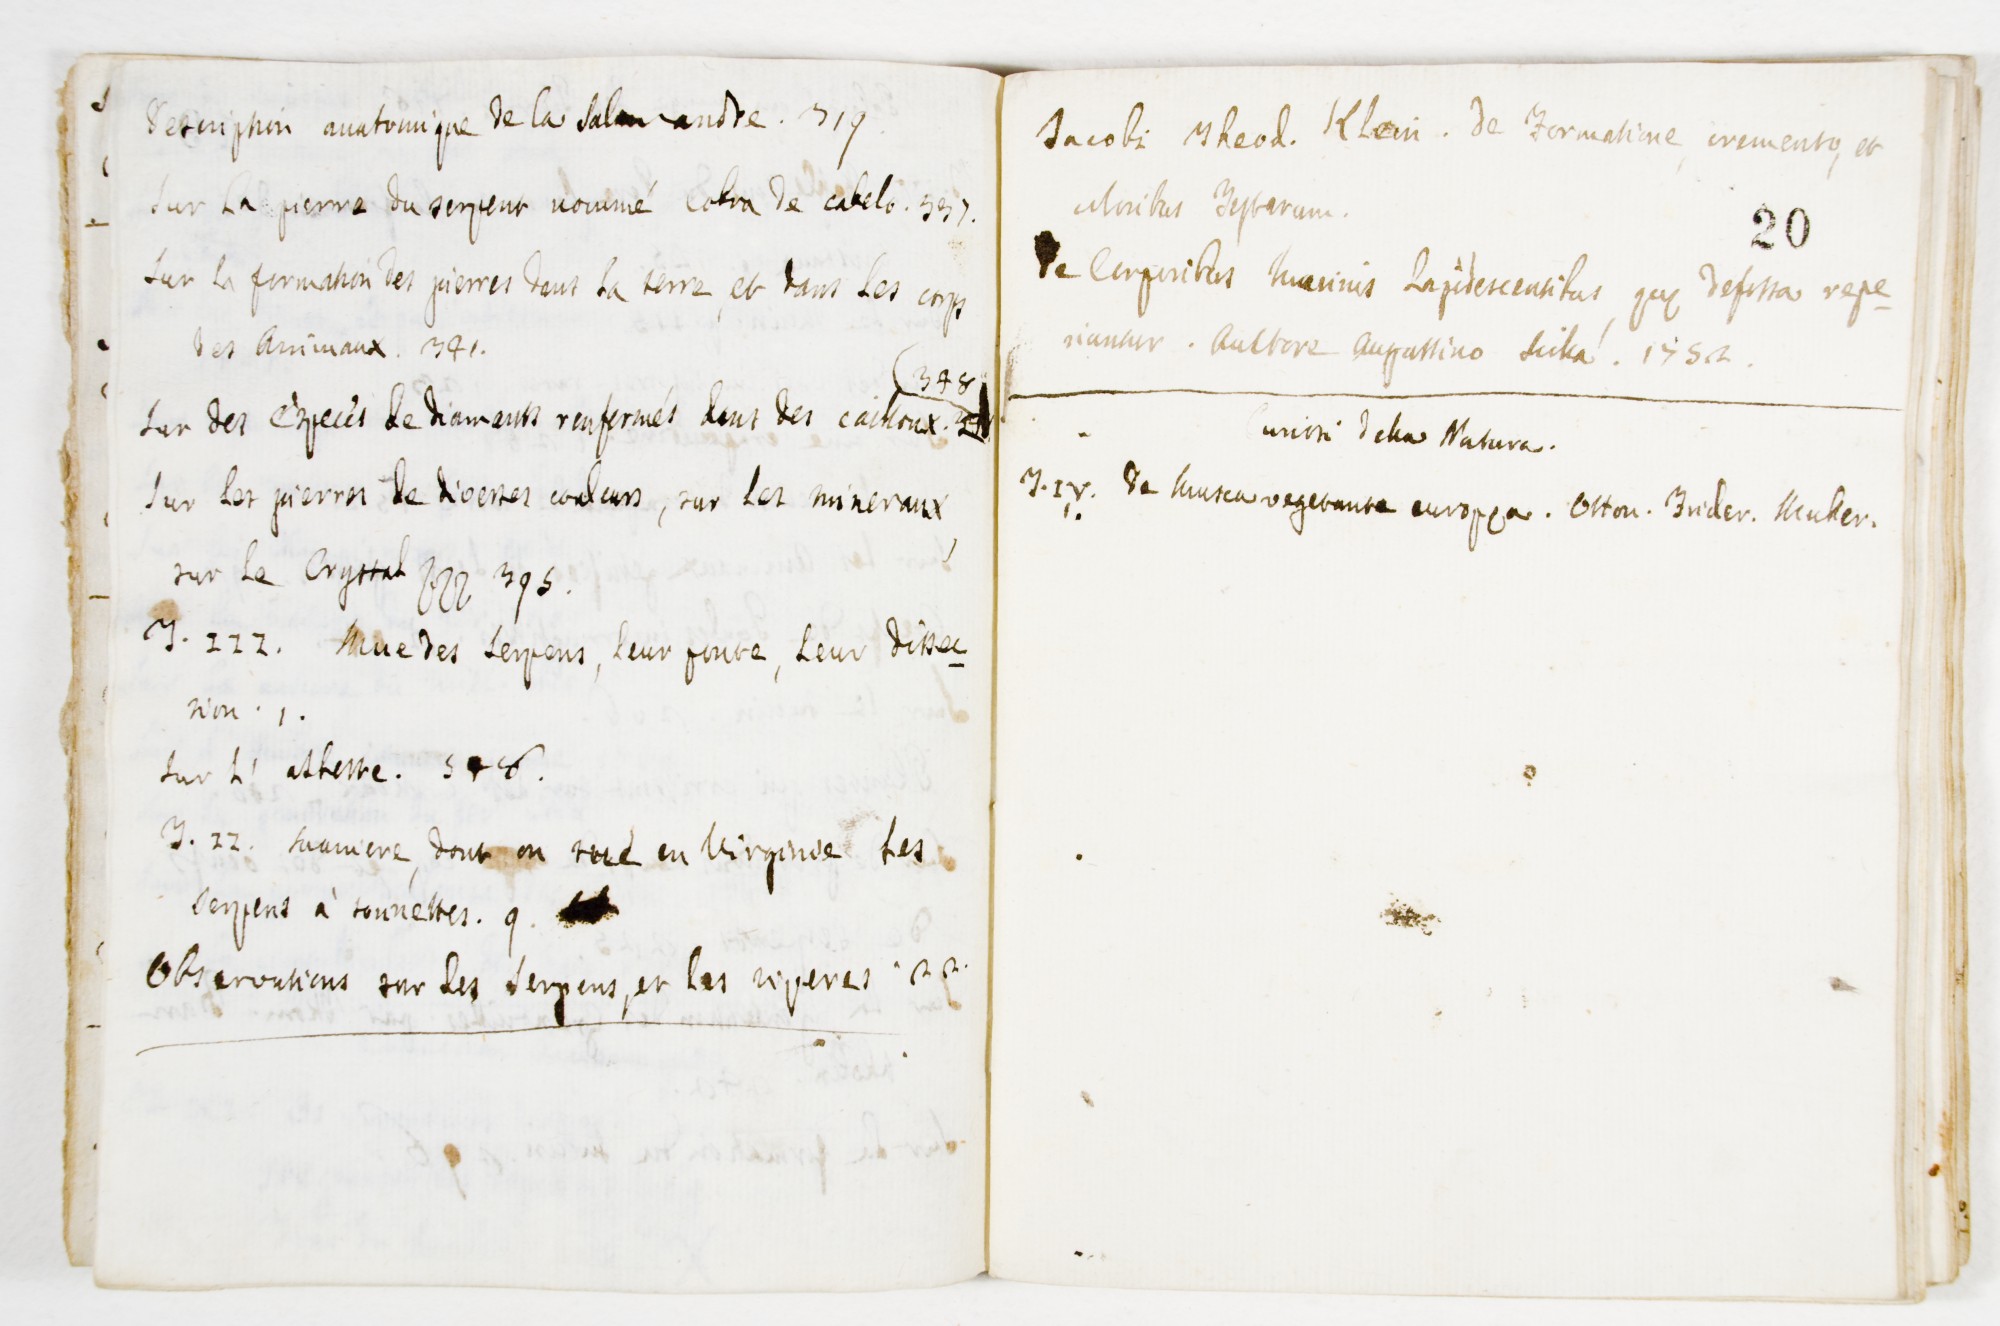 Description anatomique de la Salamandre. 319.
Sur la pierre du serpent nommé Cobra de cabelo. 337.
Sur la formation des pierres dans la terre, et dans les corps
des Animaux. 341.
(348
Sur des éspeces de diamants renfermés dans des cailloux.
Sur les pierres de diverses couleurs, sur les mineraux
sur le Crystal 395.
T. III. Mue des Serpens, leur ponte, leur dissec=
sion. 1.
Sur l' asbeste. 348.
T. II. Maniere, dont on tue en Virginie les
Serpens à sonnettes. 9.
Observations sur les Serpens, et les viperes. 22.
Jacobi Theod. Klein. De Formatione, cremento, et
coloribus Testarum.
20
De Corporibus Marinis Lapidescentibus, quæ defossa repe=
riuntur. Auctore Augustino Scilla. 1752.
Curiosi della Natura.
T. IV. De Musca vegetante europæa. Otton. Frider. Muller.